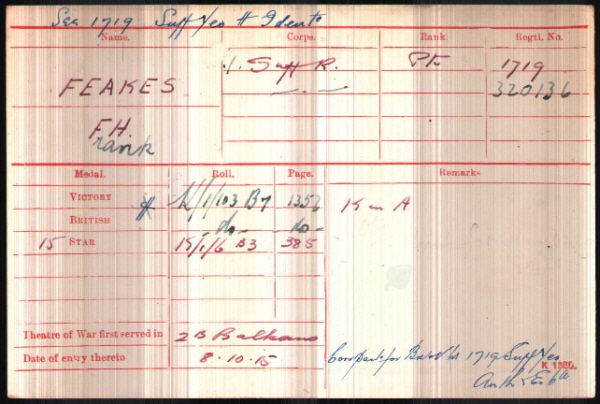 See 1719 Suff Yeo # Ident
Name. Corps. Rank. Regtl. No.
FEAKES 1. Suff R. Pte 1719
— . — 320136
F.H.
rank
Medal. Roll. Page. Remarks
VICTORY # K/1/103 B7 1352 K in A
BRITISH -do- -do-
15 STAR 15/1/6 B3 385
Theatre of War first served in 2B Balkans
Date of entry therein 8.10.15
1719 Suff Yeo
K 1380.